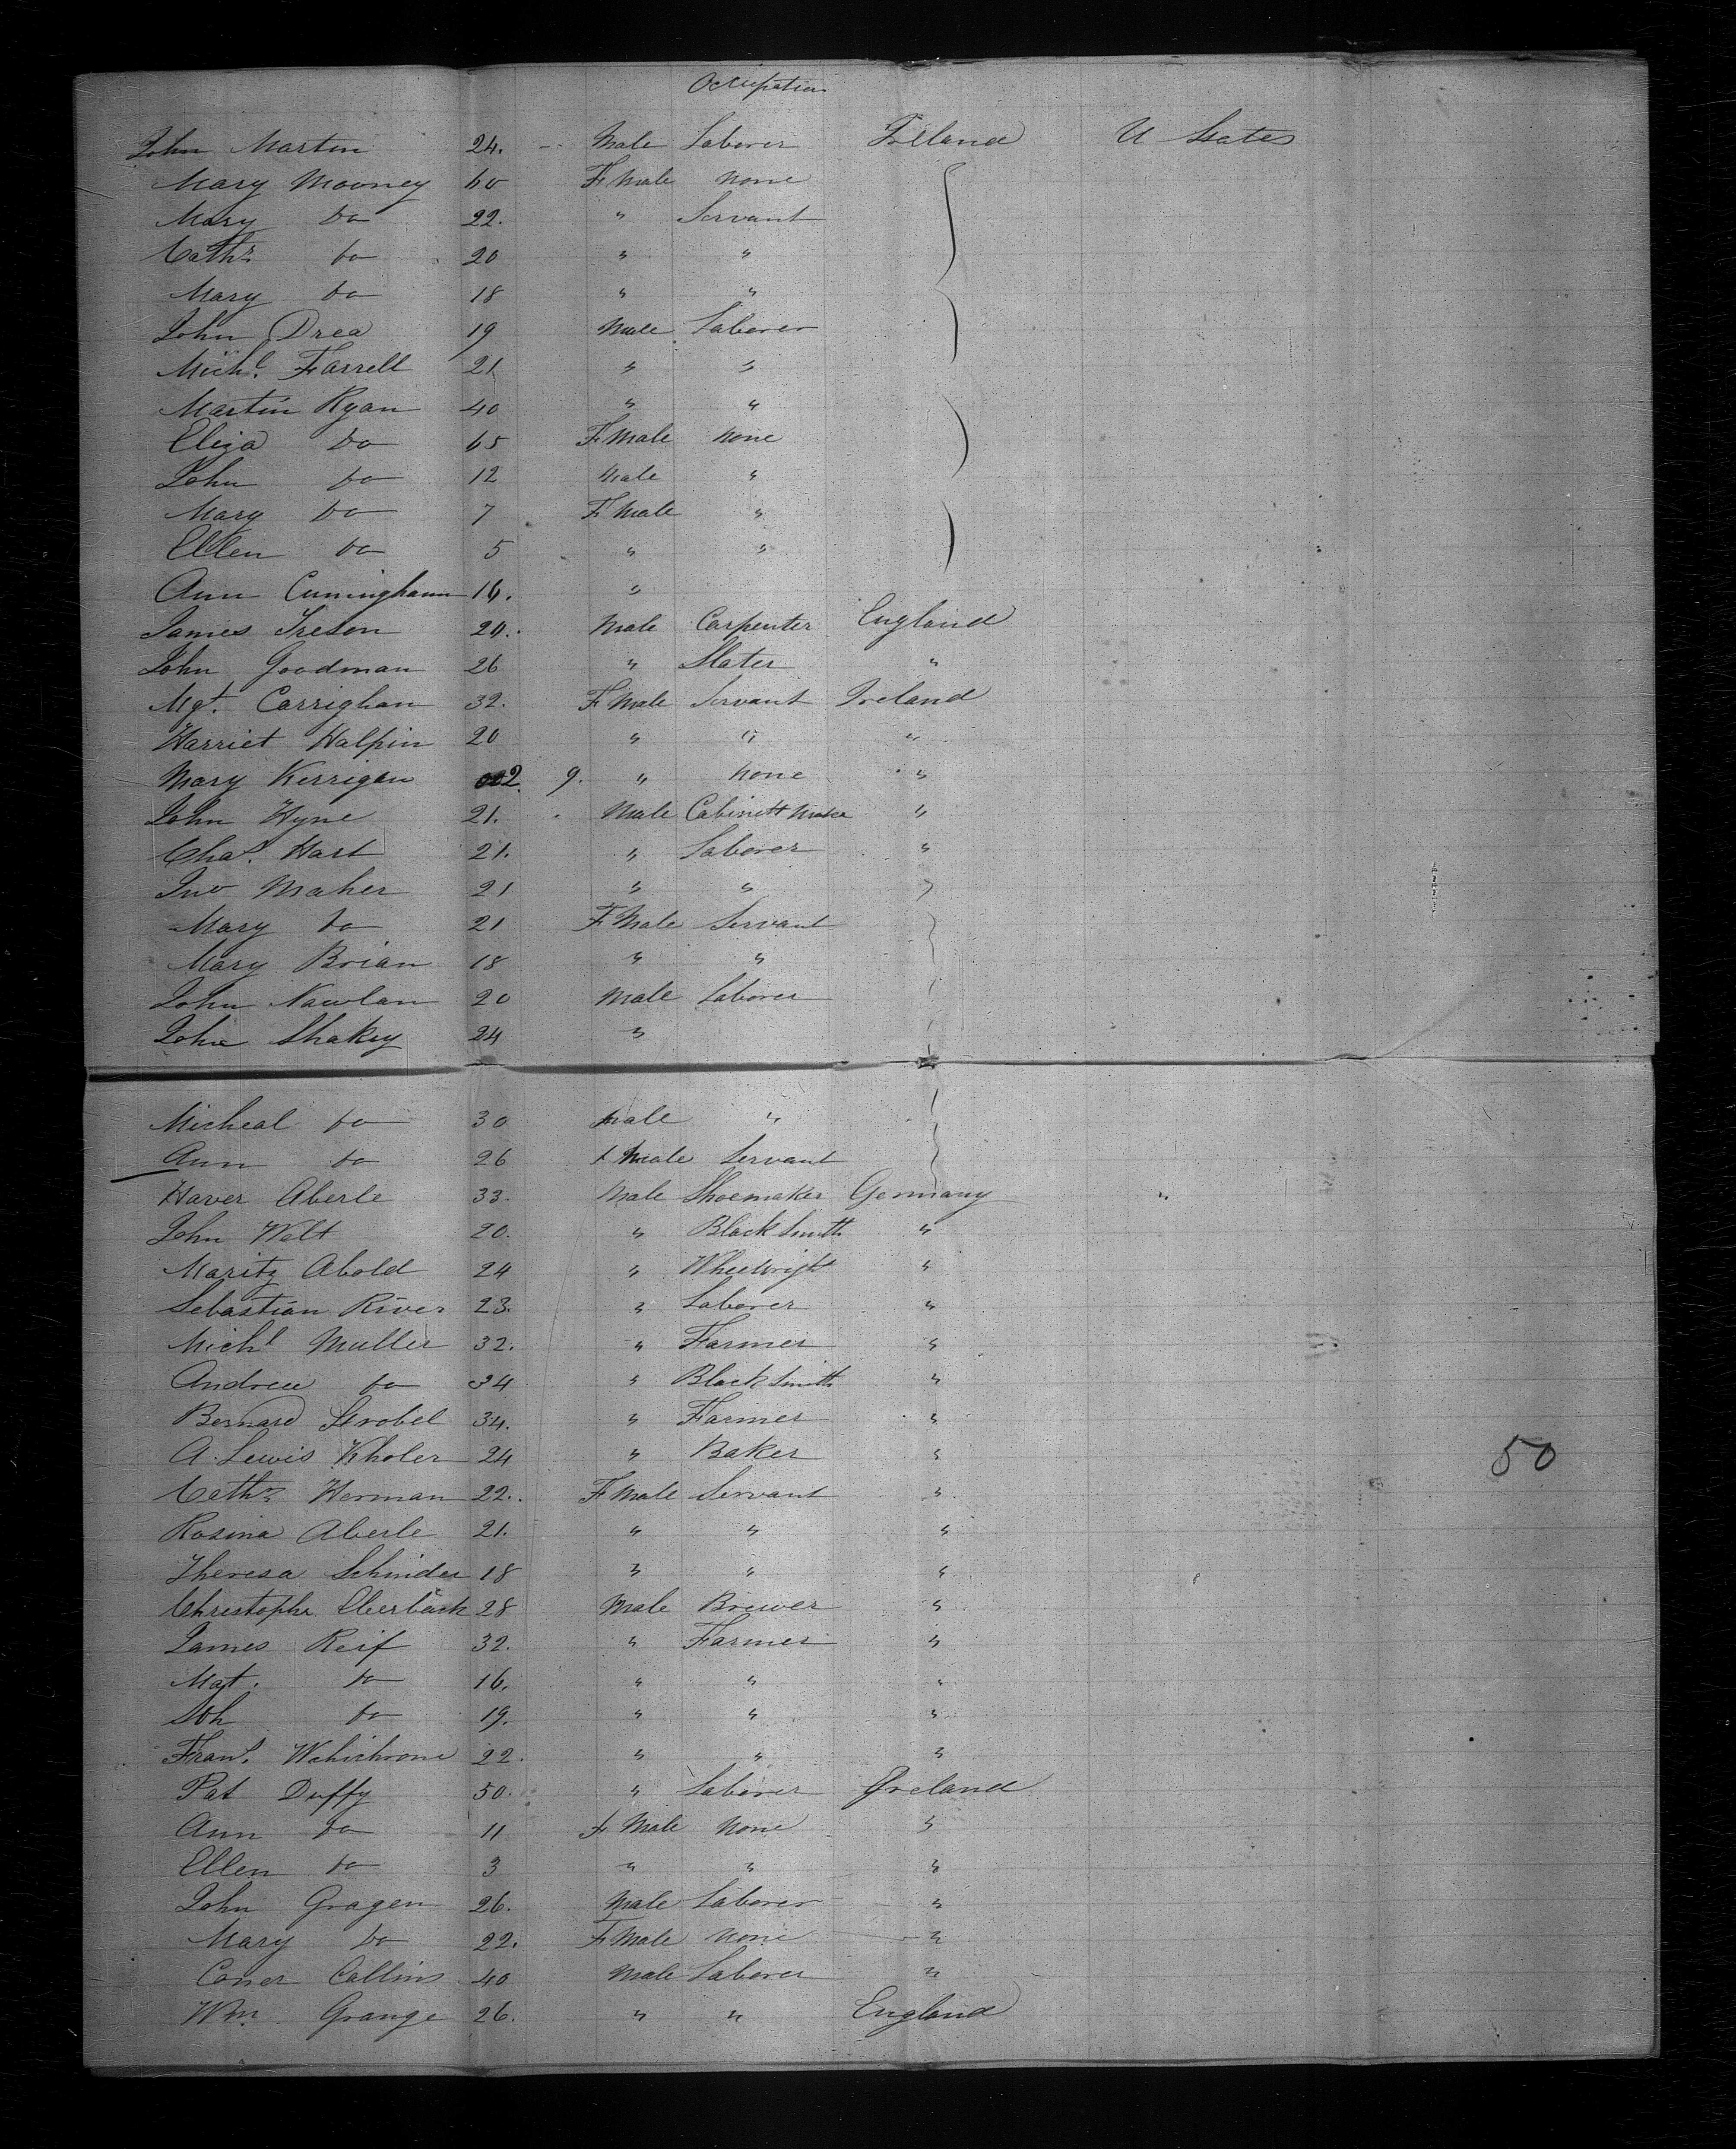 Occupation
John Martin 24. Male Laborer Ireland U States
Mary Mooney 60 F Male None
Mary do 22. " Servant
Cathr do 20 " "
Mary do 18 " "
John Drea 19 Male Laborer
Michl. Farrell 21 " "
Martin Ryan 40 " "
Eliza do 65 F Male None
John do 12 Male "
Mary do 7 F Male "
Ellen do 5 " "
Ann Cuningham 16. "
James Ireson 24. Male Carpenter England
John Goodman 26 " Slater "
Mgt. Carrighan 32. F Male Servant Ireland
Harriet Halpin 20 " " "
Mary Kerrigan 2. 9. " None "
John Hyne 21. Male Cabinett Maker "
Chas. Hart 21. " Laborer "
Jno Maher 21 " " "
Mary do 21 F Male Servant
Mary Brian 18 " "
John Nawlan 20 Male Laborer
John Shakey 24 "
Micheal do 30 Male "
Ann do 26 F Male Servant
Haver Aberle 33. Male Shoemaker Germany "
John Welt 20. " Black Smith "
Maritz Abold 24 " Wheelwright "
Sebastian River 23. " Laborer "
Michl Muller 32. " Farmer "
Andrew do 34 " Black Smith "
Bernard Strobel 34. " Farmer "
A. Lewis Kholer 24 " Baker "
Cathr Herman 22. F Male Servant "
50
Rosina Aberle 21. " " "
Theresa Schnider 18 " " "
Christophr Eberback 28 Male Brewer "
James Reif 32. " Farmer "
Mat. do 16. " " "
Joh do 19. " " "
Frans. 22. " " "
Pat Duffy 50. " Laborer Ireland
Ann do 11 F Male None "
Ellen do 3 " " "
John Gragen 26. Male Laborer "
Mary do 22. F Male None "
Coner Collins 40 Male Laborer "
Wm. Grange 26. " " England